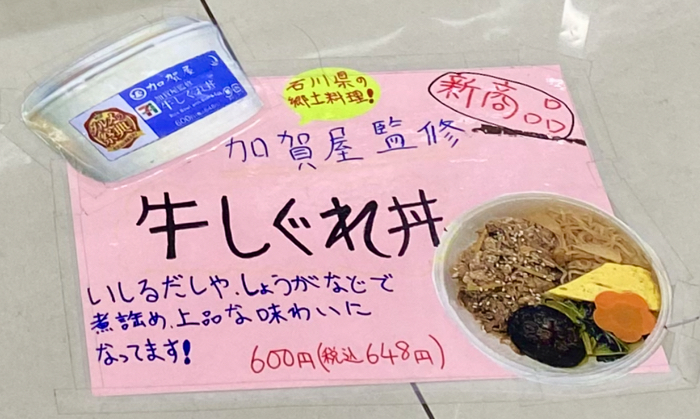 加賀屋
牛しぐれ丼
600円
石川県の
郷土料理!
新商品
加賀屋監修
牛しぐれ丼
いしるだしや、しょうがなどで
煮詰め、上品な味わいに
なってます!
600円(税込648円)